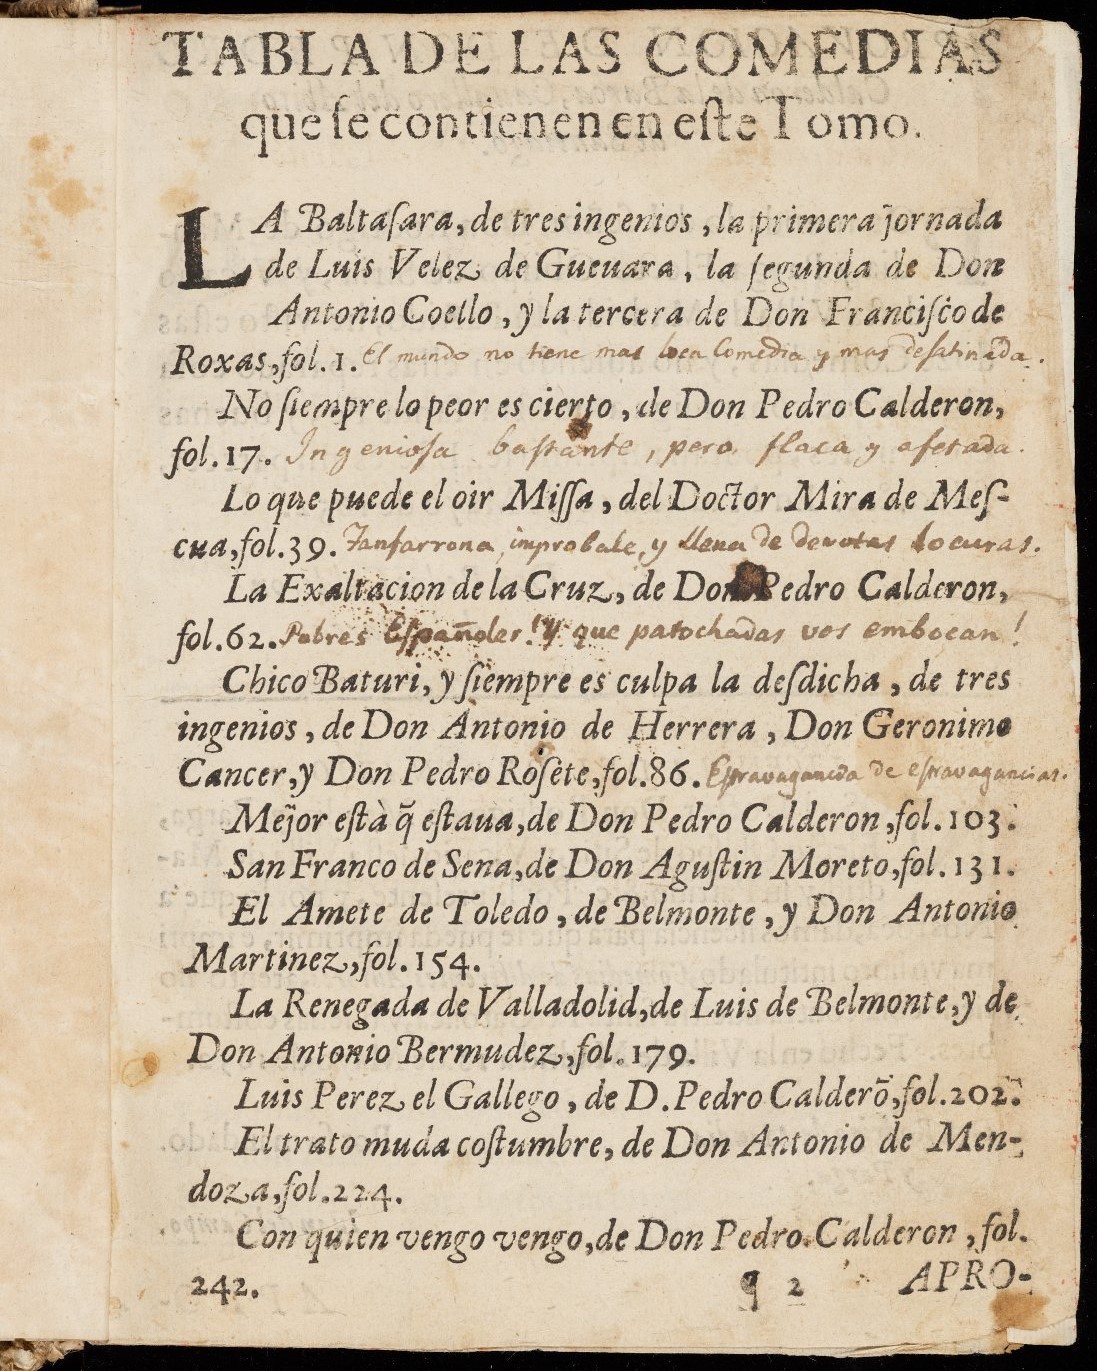 TABLA DE LAS COMEDIAS
que ſe contienen en eſte Tomo.
LA Baltaſara, de tres ingenios, la primera jornada
de Luis Velez de Gueuara, la ſegunda de Don
Antonio Coello, y la tercera de Don Franciſco de
Roxas, fol. 1. El mundo no tiene mas loca Comedia y mas deſatinada.
No ſiempre lo peor es cierto, de Don Pedro Calderon,
fol. 17. Ingenioſa baſtante, pero flaca y afetada.
Lo que puede el oir Miſſa, del Doctor Mira de Meſ-
cua, fol. 39. Fanfarrona, improbale, y llena de devotas locuras.
La Exaltacion de la Cruz, de Don Pedro Calderon,
fol. 62. Pobres Eſpañoles! Y que patochadas vos embocan!
Chico Baturi, y ſiempre es culpa la deſdicha, de tres
ingenios, de Don Antonio de Herrera, Don Geronimo
Cancer, y Don Pedro Roſete, fol. 86. Eſtravagancia de eſtravagancias.
Mejor eſtà q̃ eſtaua, de Don Pedro Calderon, fol. 103.
San Franco de Sena, de Don Aguſtin Moreto, fol. 131.
El Amete de Toledo, de Belmonte, y Don Antonio
Martinez, fol. 154.
La Renegada de Valladolid, de Luis de Belmonte, y de
Don Antonio Bermudez, fol. 179.
Luis Perez el Gallego, de D. Pedro Calderõ, fol. 202.
El trato muda coſtumbre, de Don Antonio de Men-
doza, fol. 224.
Con quien vengo vengo, de Don Pedro Calderon, fol.
242. q 2 APRO-